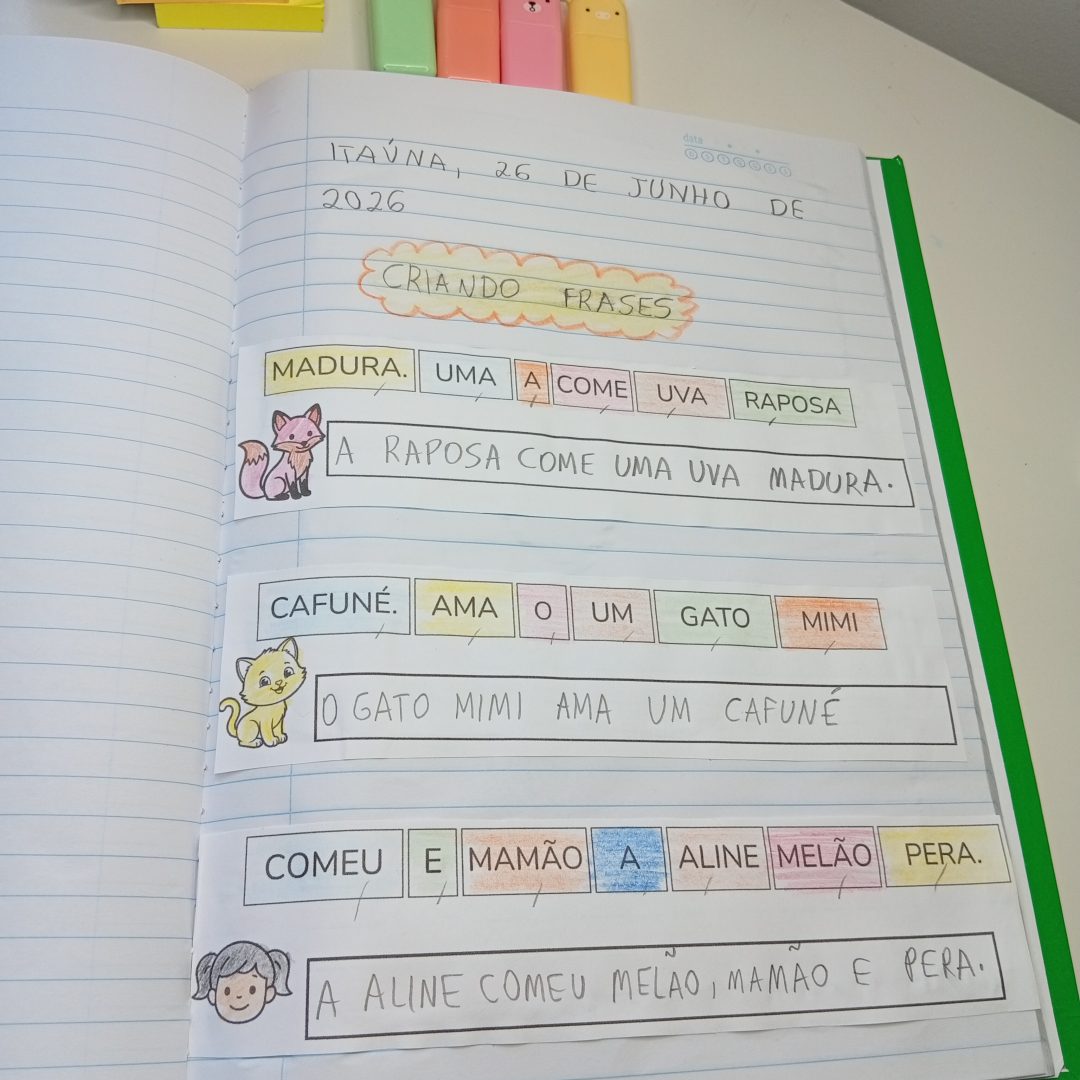 data
D S T Q Q S S
ITAÚNA, 26 DE JUNHO DE
2026
CRIANDO FRASES
MADURA. UMA A COME UVA RAPOSA
A RAPOSA COME UMA UVA MADURA.
CAFUNÉ. AMA O UM GATO MIMI
O GATO MIMI AMA UM CAFUNÉ
COMEU E MAMÃO A ALINE MELÃO PERA.
A ALINE COMEU MELÃO, MAMÃO E PERA.